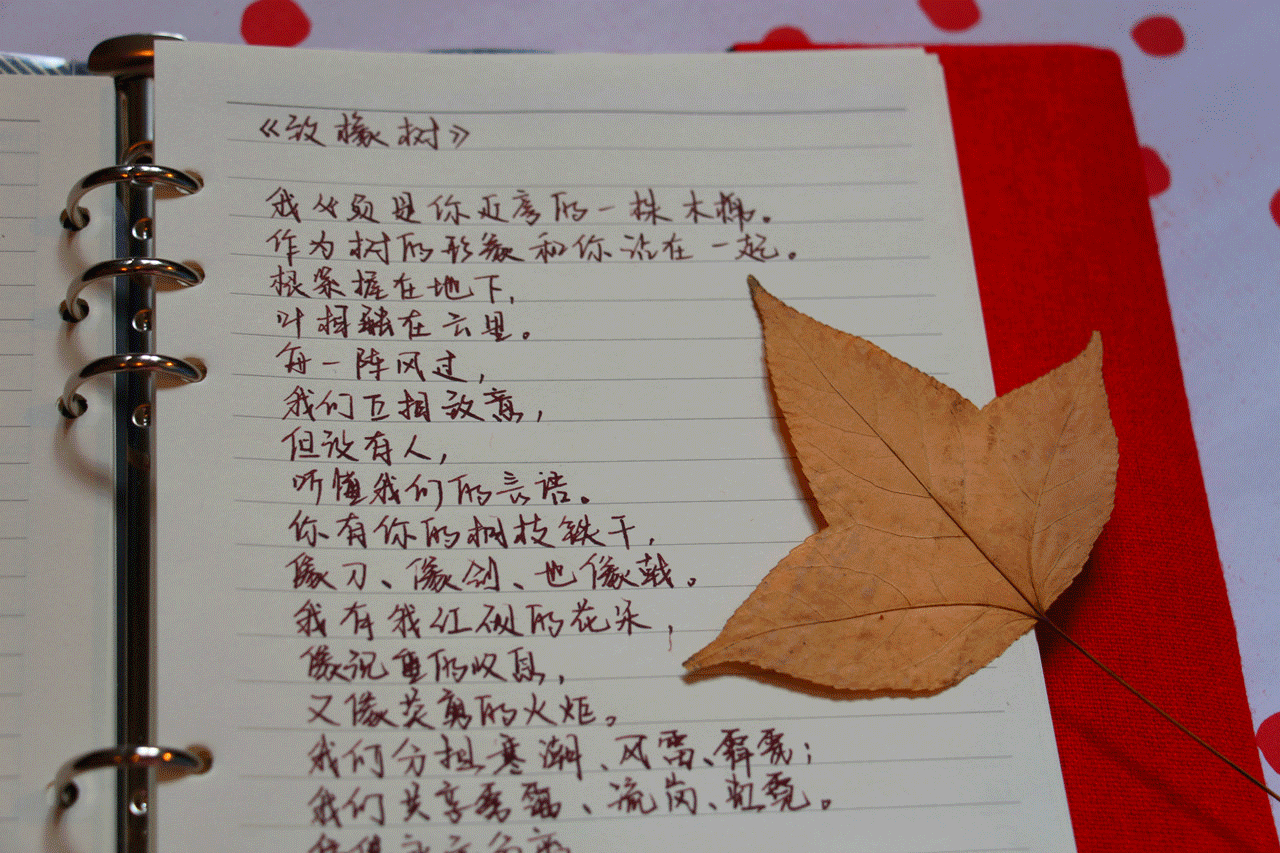 《致橡树》
我必须是你近旁的一株木棉。
作为树的形象和你站在一起。
根紧握在地下,
叶相融在云里。
每一阵风过,
我们互相致意,
但没有人,
听懂我们的言语。
你有你的桐枝铁干,
像刀、像剑、也像戟。
我有我红硕的花朵,
像沉重的叹息,
又像英勇的火炬。
我们分担寒潮、风雷、霹雳;
我们共享雾霭、流岚、虹霓。